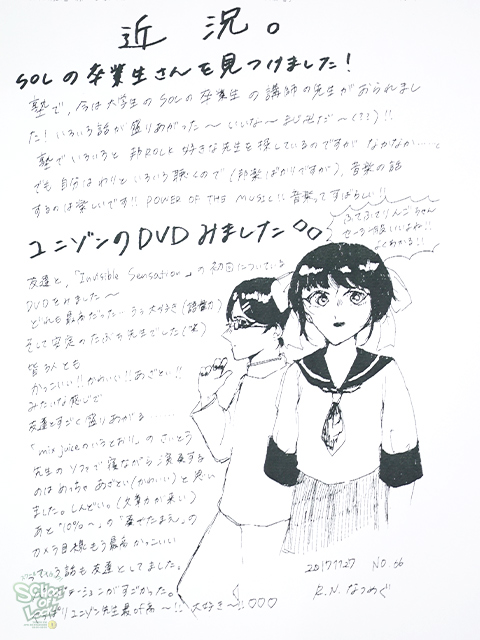 近況。
SOLの卒業生さんを見つけました!
塾で、今は大学生のSOLの卒業生の講師の先生がおられまし
た!いろいろ話が盛りあがった〜いいな〜
塾でいろいろと邦ROCKと好きな先生を探しているのですがなかなか……
でも自分はわりといろいろ聴くので(邦楽ばかりですが)、音楽の話
するのは楽しいです!! POWER OF THE MUSIC!! 音楽ってすばらしい!!
ユニゾンのDVDみました
セーラー服いいよね!!
すごくわかる!!
友達と、「Invisible Sensation」の初回についている
DVDをみました〜
どれも最高だった…
そして安定のたぶち先生でした(笑)
皆さんとも
かっこいい!!かわいい!!あざとい!!
みたいな感じで
友達とすごく盛りあがる……
「mix juiceのいうとおり」のさいとう
先生のソファで寝ながら演奏する
のはめっちゃあざとい(かわいい)と思い
ました。しんどい。
あと"10%〜"の
カメラ目線もう最高かっこいい
っていう話も友達としてました。
がすごかった。
やっぱりユニゾン先生最高〜!! 大好き〜!!
20171127 No.56
R.N. なつめぐ
School of Lock!